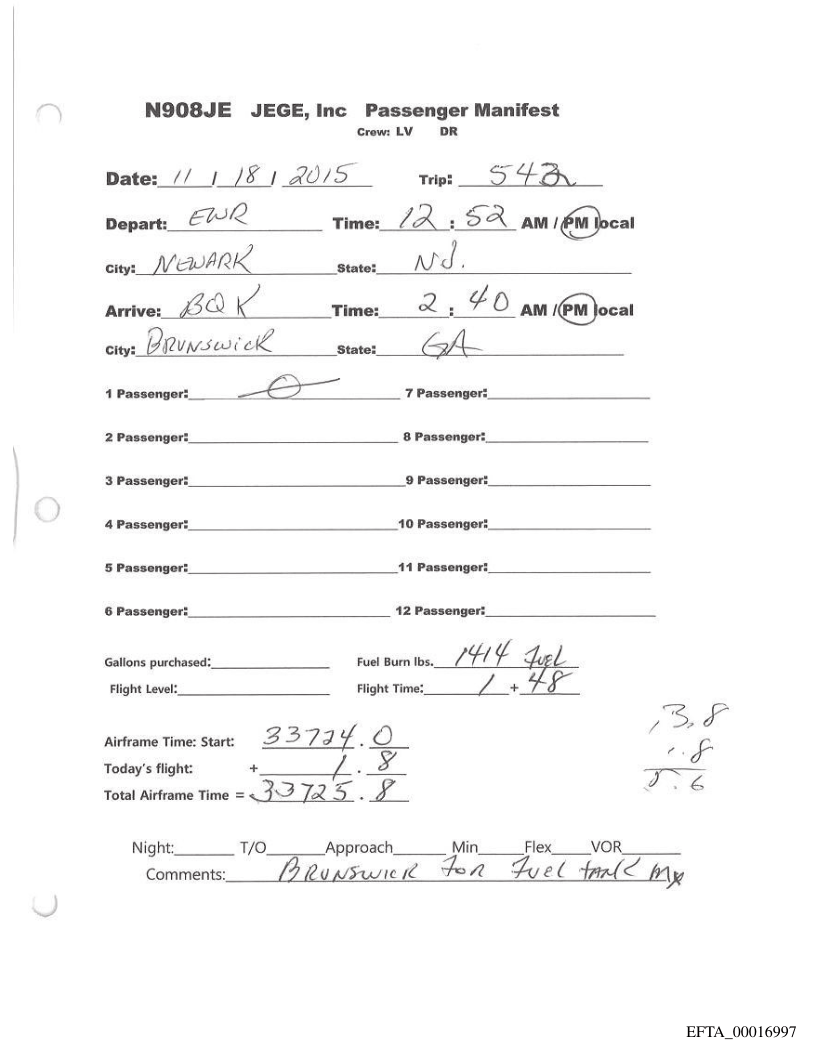 N908JE JEGE, Inc Passenger Manifest
Crew: LV DR
Date: 11 / 18 / 2015 Trip: 542
Depart: EWR Time: 12 : 52 AM / PM local
City: NEWARK State: NJ.
Arrive: BQK Time: 2 : 40 AM / PM local
City: BRUNSWICK State: GA
1 Passenger: 0 7 Passenger:
2 Passenger: 8 Passenger:
3 Passenger: 9 Passenger:
4 Passenger: 10 Passenger:
5 Passenger: 11 Passenger:
6 Passenger: 12 Passenger:
Gallons purchased: Fuel Burn lbs. 1414 Fuel
Flight Level: Flight Time: 1 + 48
3.8
.8
5.6
Airframe Time: Start: 33724.0
Today's flight: + 1.8
Total Airframe Time = 33725.8
Night: T/O Approach Min Flex VOR
Comments: BRUNSWICK For Fuel tank Mx
EFTA_00016997